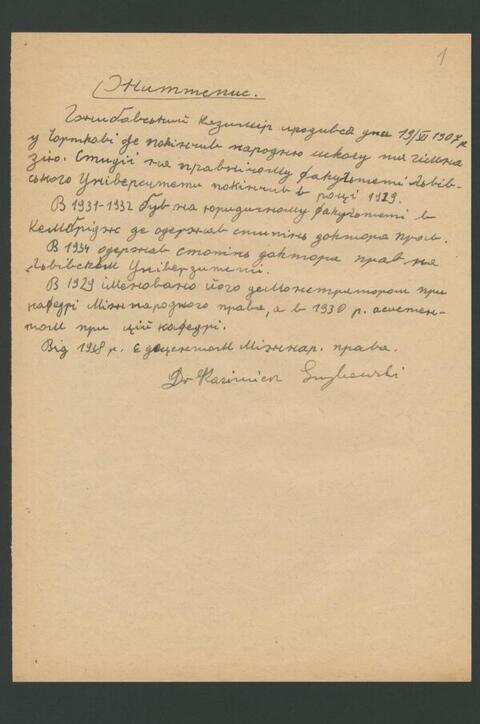 1
Життєпис.
Гжибовський Казимір уродився дня 19/VI 1907 р.
у Чорткові де покінчив народню школу та гімна
зію. Студії на правничому факультеті Львів-
ського Університети покінчив в році 1929.
В 1931-1932 був на юридичному факультеті в
Кембрідж де одержав степінь доктора прав.
В 1934 одержав стопінь доктора прав на
Львівском Університеті.
В 1929 іменовано його демонстратором при
кафедрі Міжнародного права, а в 1930 р. асистен-
том при цій кафедрі.
Від 1938 р. є доцентом Міжнар. права.
Dr Kazimierz Grzybowski